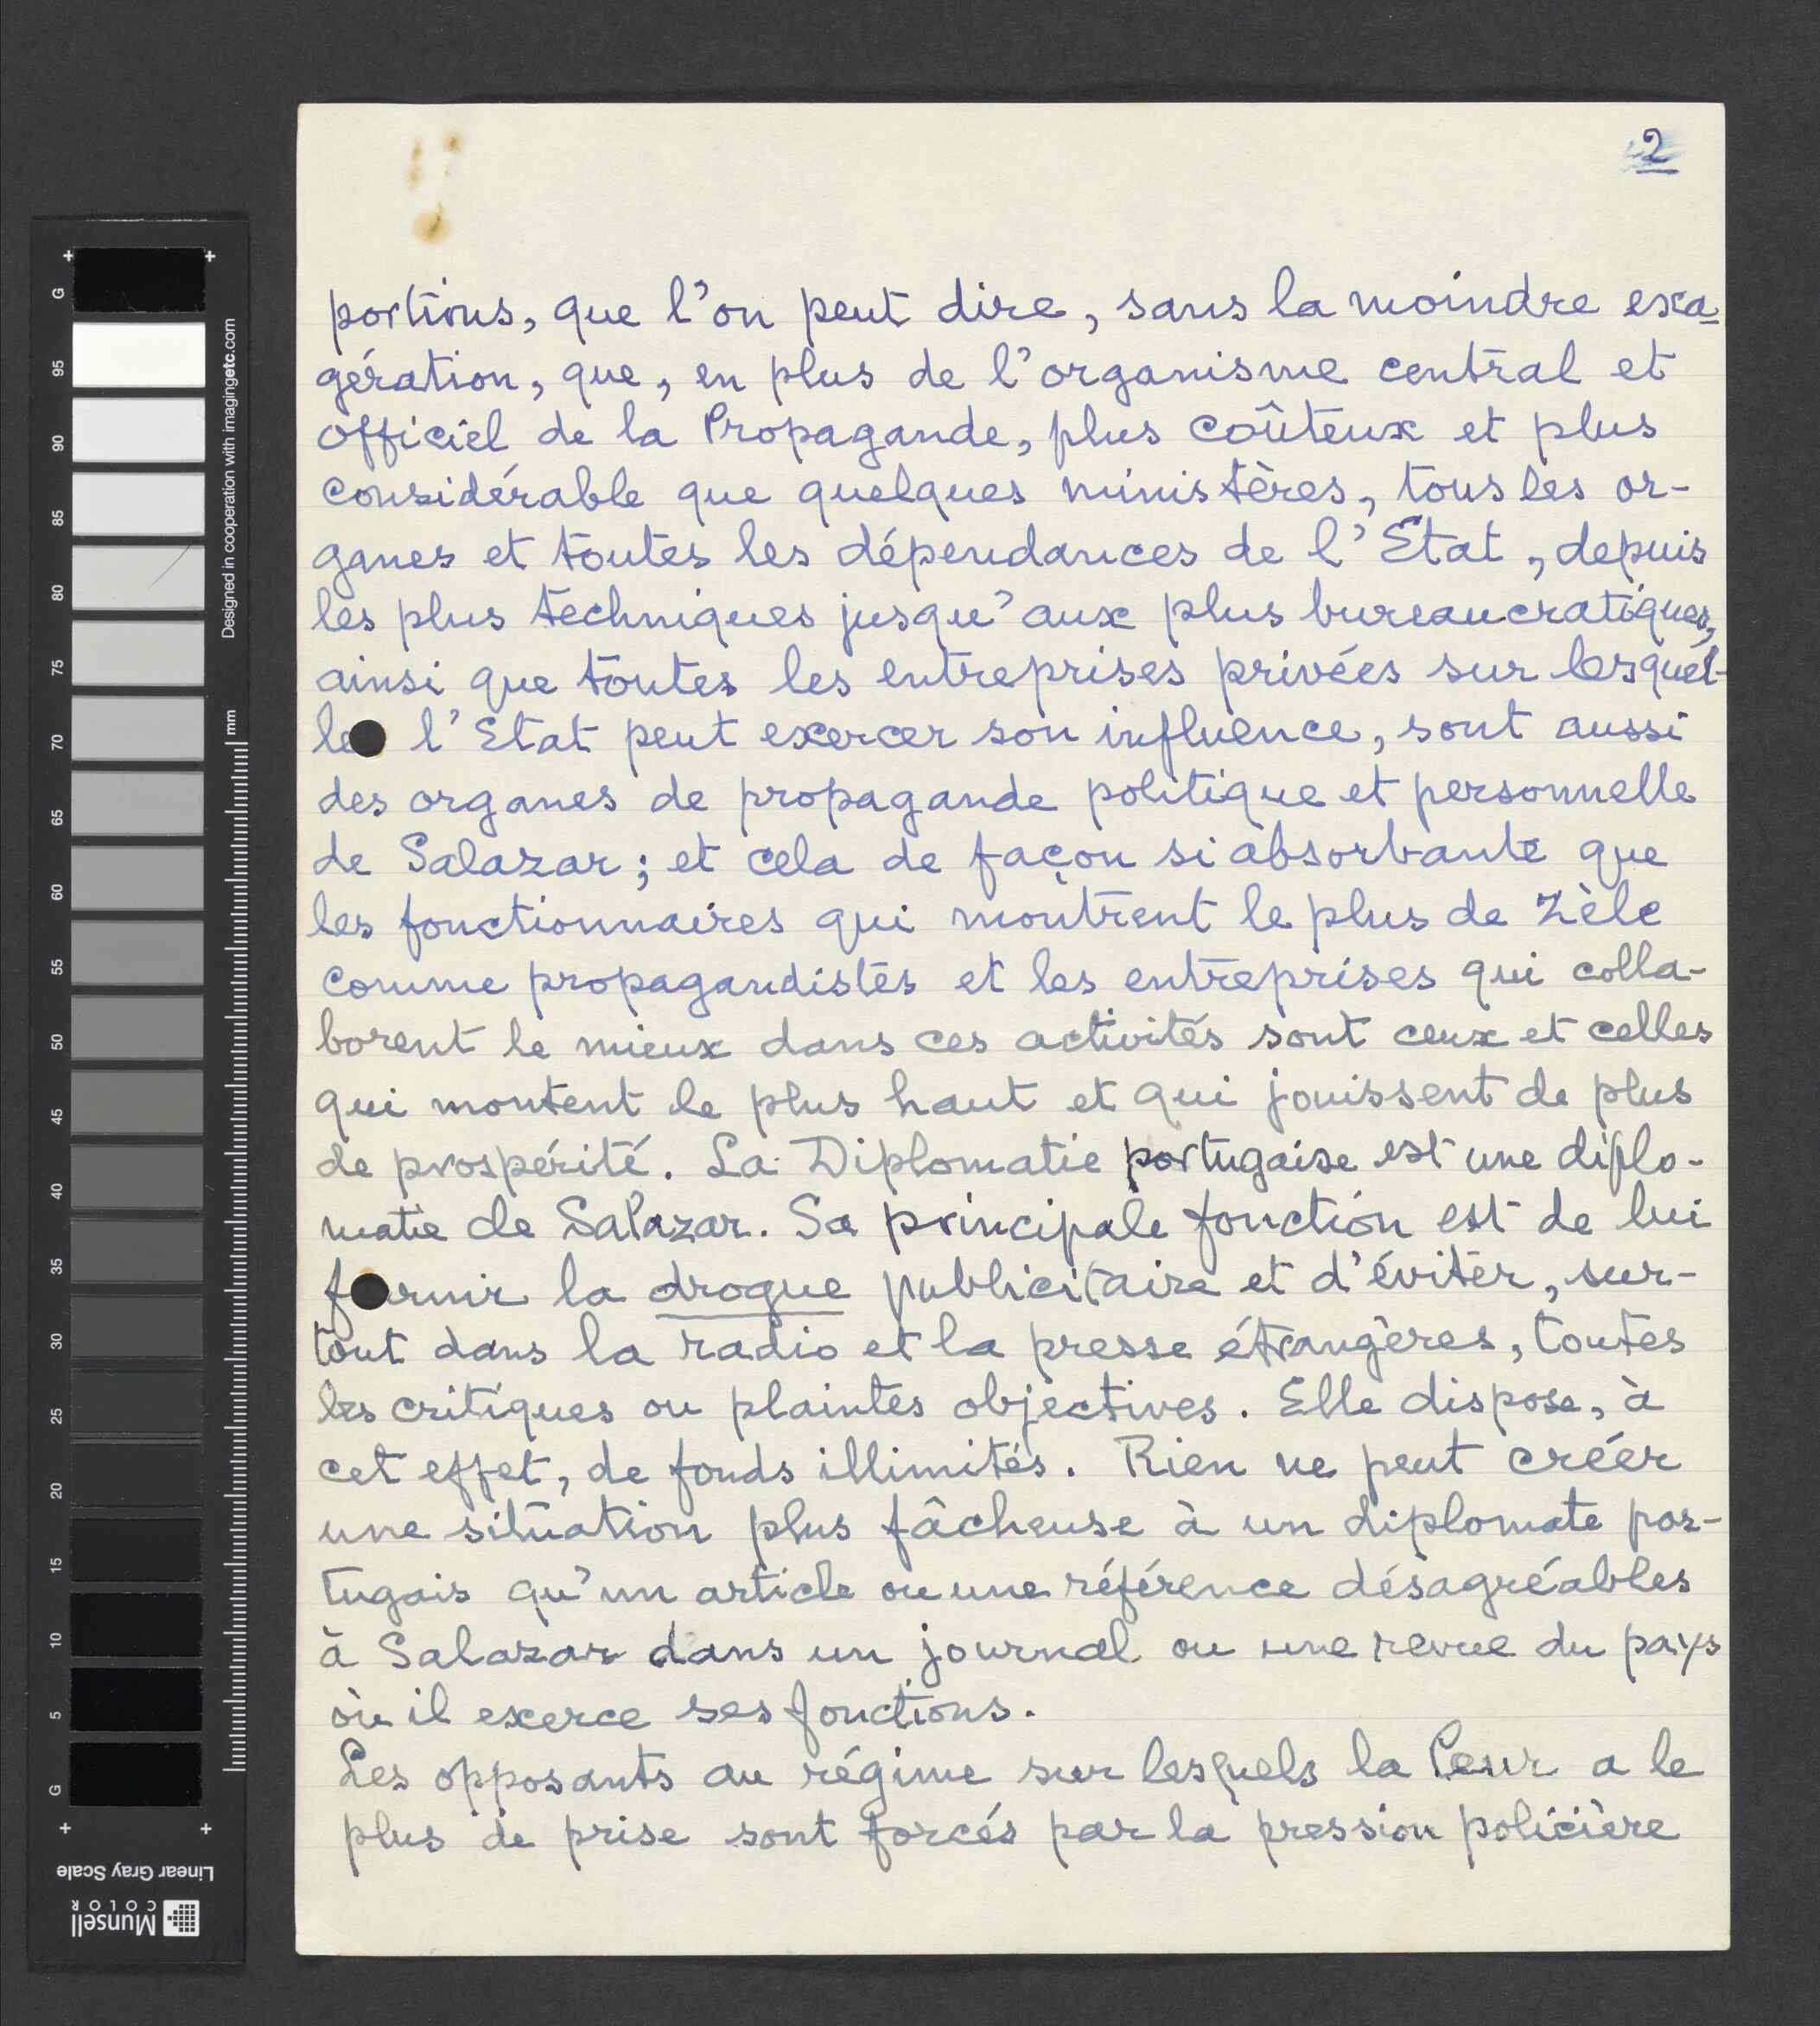 2
portions, que l'on peut dire, sans la moindre exa-
gération, que, en plus de l'organisme central et
officiel de la Propagande, plus coûteux et plus
considérable que quelques ministères, tous les or-
ganes et toutes les dépendances de l'Etat, depuis
les plus techniques jusqu'aux plus bureaucratiques,
ainsi que toutes les entreprises privées sur lesquel-
les l'Etat peut exercer son influence, sont aussi
des organes de propagande politique et personnelle
de Salazar; et cela de façon si absorbante que
les fonctionnaires qui montrent le plus de zèle
comme propagandistes et les entreprises qui colla-
borent le mieux dans ces activités sont ceux et celles
qui montent le plus haut et qui jouissent de plus
de prospérité. La Diplomatie portugaise est une diplo-
matie de Salazar. Sa principale fonction est de lui
fournir la drogue publicitaire et d'éviter, sur-
tout dans la radio et la presse étrangères, toutes
les critiques ou plaintes objectives. Elle dispose, à
cet effet, de fonds illimités. Rien ne peut créér
une situation plus fâcheuse à un diplomate por-
tugais qu'un article ou une référence désagréables
à Salazar dans un journal ou une revue du pays
où il exerce ses fonctions.
Les opposants au régime sur lesquels la Peur a le
plus de prise sont forcés par la pression policière
G
95
90
85
80
75
70
65
60
55
50
45
40
35
30
25
20
15
10
5
G
Designed in cooperation with imagingetc.com
mm
Linear Gray Scale
Munsell
COLOR